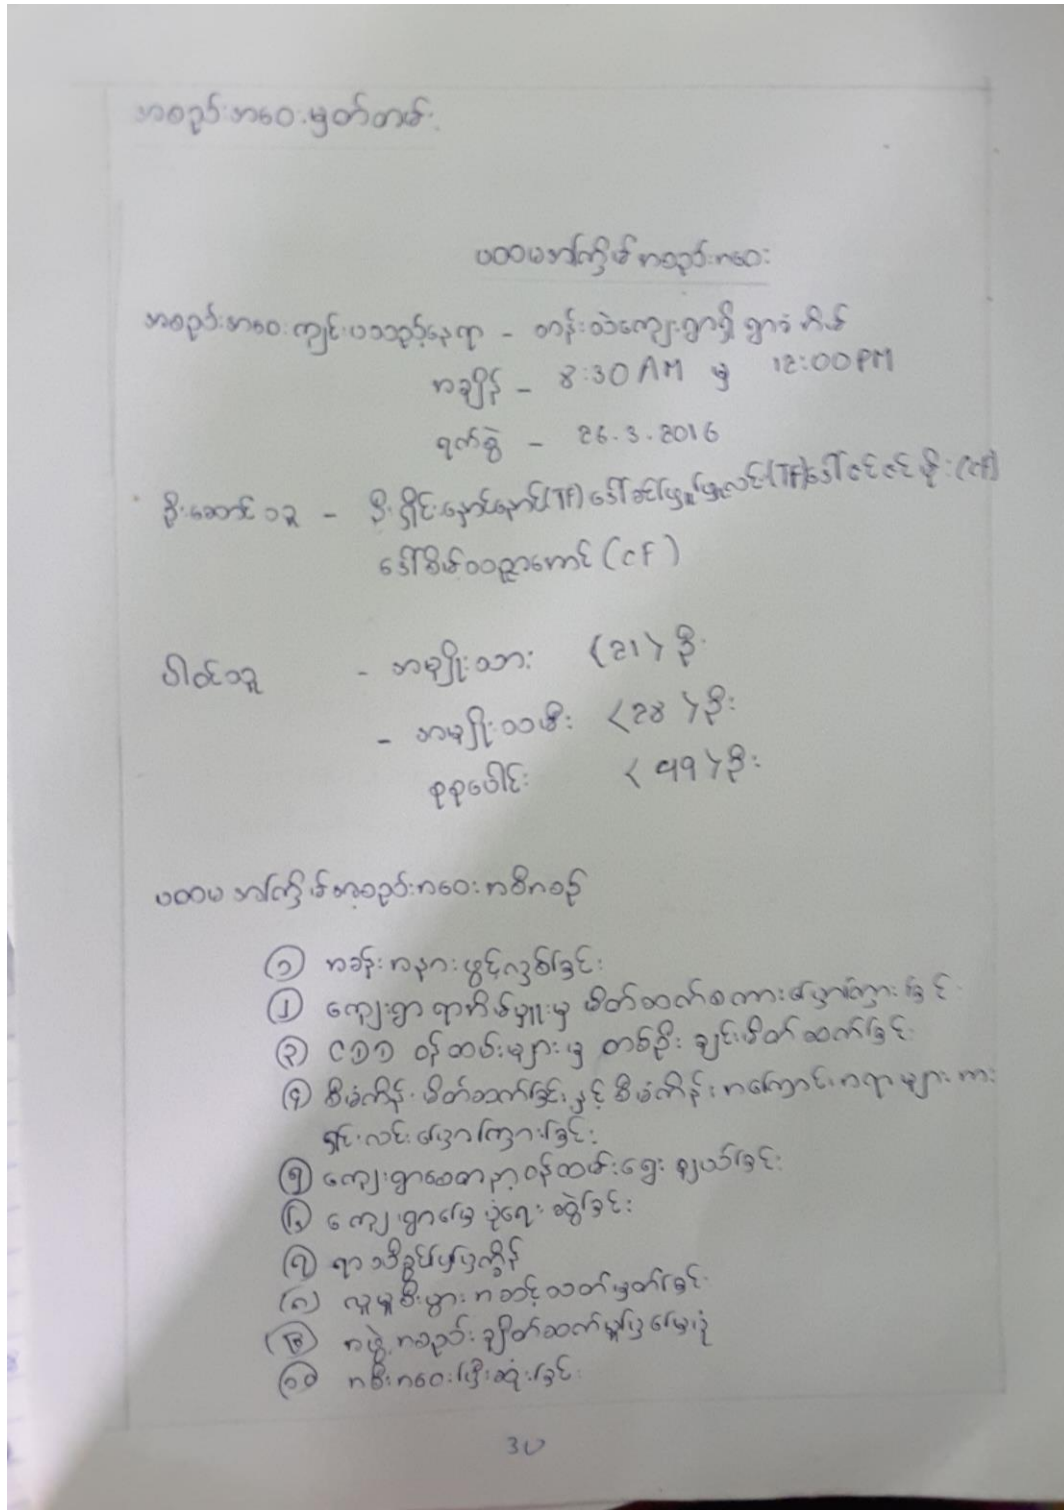 အစည်းအဝေးမှတ်တမ်း
ပထမအကြိမ်အစည်းအဝေး
အစည်းအဝေးကျင်းပသည့်နေရာ - တန်းသဲကျေးရွာရှိ ရွာခံအိမ်
အချိန် - 8:30 AM မှ 12:00PM
ရက်စွဲ - 26.3.2016
ဦးဆောင်သူ - ဦးရှိုင်းနောင်နောင်(TF) ဒေါ်ခင်ဖြူဖြူလင်း(TF) ဒေါ်ဇင်ဇင်ဖြိုး(CF)
ဒေါ်စိမ်းပညာအောင် (CF)
ပါဝင်သူ - အမျိုးသား <21> ဦး
- အမျိုးသမီး <28> ဦး
စုစုပေါင်း <၄၅> ဦး
ပထမအကြိမ်အစည်းအဝေးအစီအစဉ်
၁ အခန်းအနားဖွင့်လှစ်ခြင်း
၂ ကျေးရွာရာအိမ်မှူးမှ မိတ်ဆက်စကားပြောကြားခြင်း
၃ CDD ဝန်ထမ်းများမှ တစ်ဦးချင်းမိတ်ဆက်ခြင်း
၄ စီမံကိန်းမိတ်ဆက်ခြင်းနှင့် စီမံကိန်းအကြောင်းအရာများအား
ရှင်းလင်းပြောကြားခြင်း
၅ ကျေးရွာစေတနာ့ဝန်ထမ်းရွေးချယ်ခြင်း
၆ ကျေးရွာမြေပုံရေးဆွဲခြင်း
၇ ရာသီခွင်ပြပြက္ခဒိန်
၈ လူမှုစီးပွားအဆင့်သတ်မှတ်ခြင်း
၉ အဖွဲ့အစည်းချိတ်ဆက်မှုပြမြေပုံ
၁၀ အစီးအဝေးပြီးဆုံးခြင်း
30